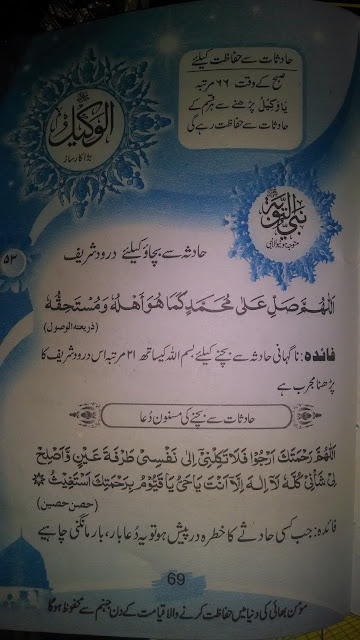 حادثات سے حفاظت کیلئے
صبح کے وقت ۶۶ مرتبہ
یَا وَکِیْلُ پڑھنے سے ہر قسم کے
حادثات سے حفاظت رہے گی
الوکیل
بڑا کارساز
نبی التوبۃ
۵۳
حادثہ سے بچاؤ کیلئے درود شریف
اَللّٰهُمَّ صَلِّ عَلٰى مُحَمَّدٍ كَمَا هُوَ اَهْلُهٗ وَمُسْتَحِقُّهٗ
(ذریعتہ الوصول)
فائدہ: ناگہانی حادثہ سے بچنے کیلئے بسم اللہ کیساتھ ۲۱ مرتبہ اس درود شریف کا
پڑھنا مجرب ہے
حادثات سے بچنے کی مسنون دُعا
اَللّٰهُمَّ رَحْمَتَكَ اَرْجُوْا فَلَا تَكِلْنِیْ اِلٰى نَفْسِیْ طَرْفَةَ عَيْنٍ وَّاَصْلِحْ
لِیْ شَاْنِیْ كُلَّهٗ لَا اِلٰهَ اِلَّا اَنْتَ يَا حَیُّ يَا قَيُّوْمُ بِرَحْمَتِكَ اَسْتَغِيْثُ
(حصن حصین)
فائدہ: جب کسی حادثے کا خطرہ درپیش ہو تو یہ دُعا بار، بار مانگنی چاہیے
69
مومن بھائی کی دنیا میں حفاظت کرنے والا قیامت کے دن جہنم سے محفوظ ہوگا